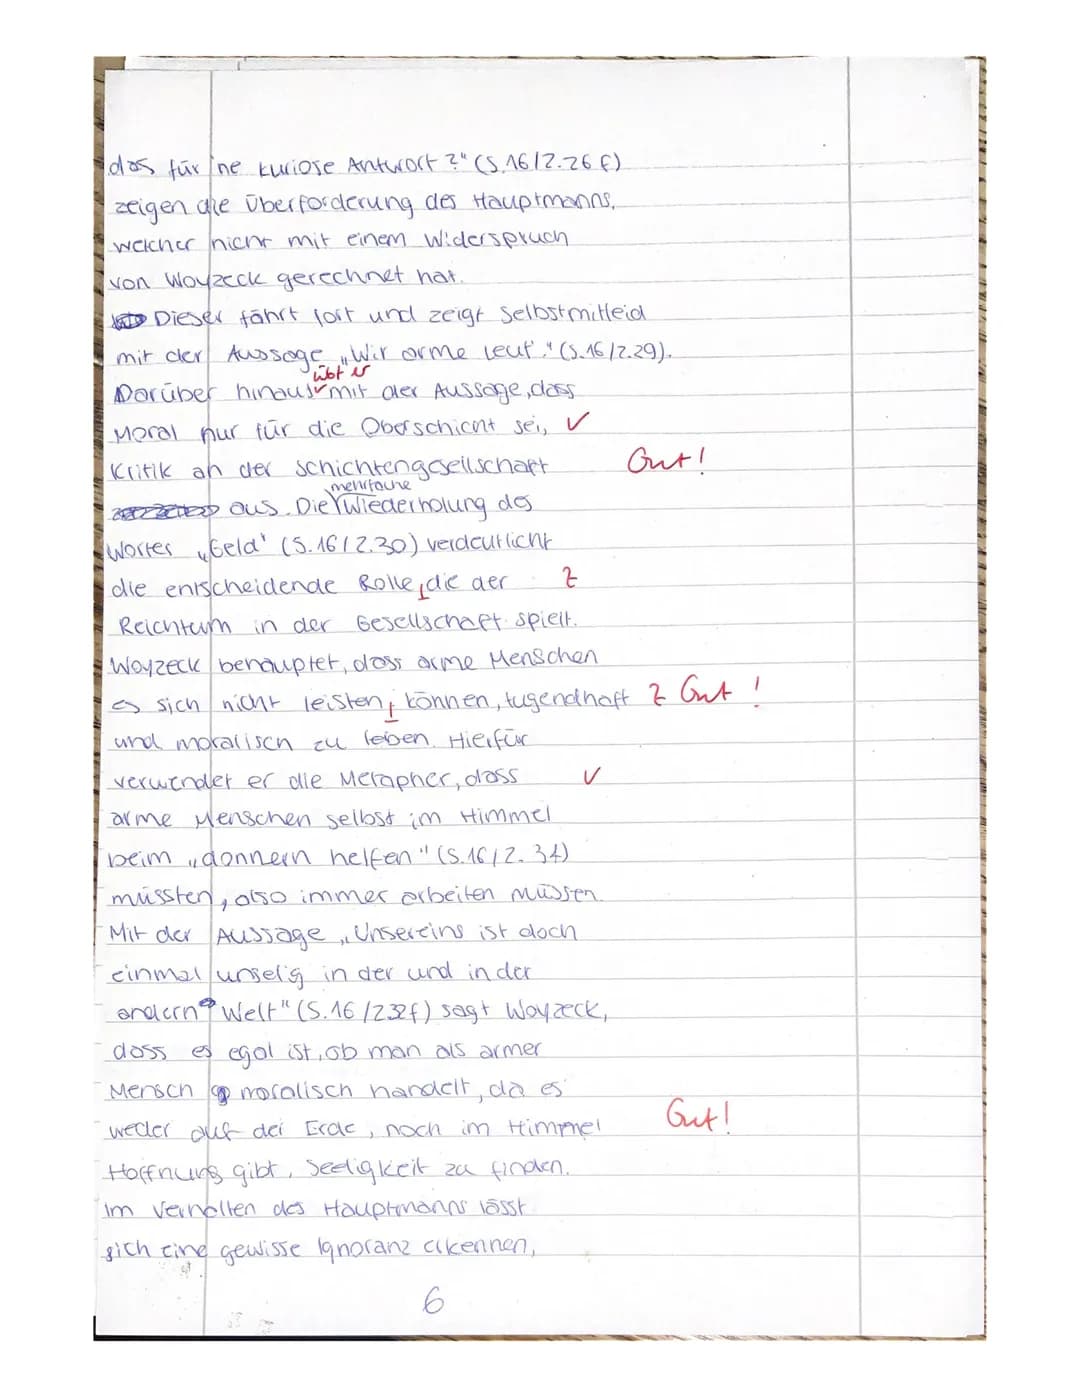 das für 'ne kuriose Antwort?" (S.16/Z.26 f)
zeigen die Überforderung des Hauptmanns,
welcher nicht mit einem Widerspruch
von Woyzeck gerechnet hat.
Dieser fährt fort und zeigt Selbstmitleid
mit der Aussage „Wir arme Leut." (S.16/Z.29).
übt er
Darüber hinaus mit der Aussage, dass
Moral nur für die Oberschicht sei, ✓
Kritik an der Schichtengesellschaft Gut!
mehrfache
aus. Die Wiederholung des
Wortes „Geld" (S.16/Z.30) verdeutlicht
die entscheidende Rolle, die der Z
Reichtum in der Gesellschaft spielt.
Woyzeck behauptet, dass arme Menschen
es sich nicht leisten können, tugendhaft Z Gut!
und moralisch zu leben. Hierfür
verwendet er die Metapher, dass ✓
arme Menschen selbst im Himmel
beim „donnern helfen" (S.16/Z.34)
müssten, also immer arbeiten müssen.
Mit der Aussage „Unsereins ist doch
einmal unselig in der und in der
andern Welt" (S.16/Z32f) sagt Woyzeck,
dass es egal ist, ob man als armer
Mensch moralisch handelt, da es
weder auf der Erde, noch im Himmel Gut!
Hoffnung gibt, Seeligkeit zu finden.
Im Verhalten des Hauptmanns lässt
sich eine gewisse Ignoranz erkennen,
6